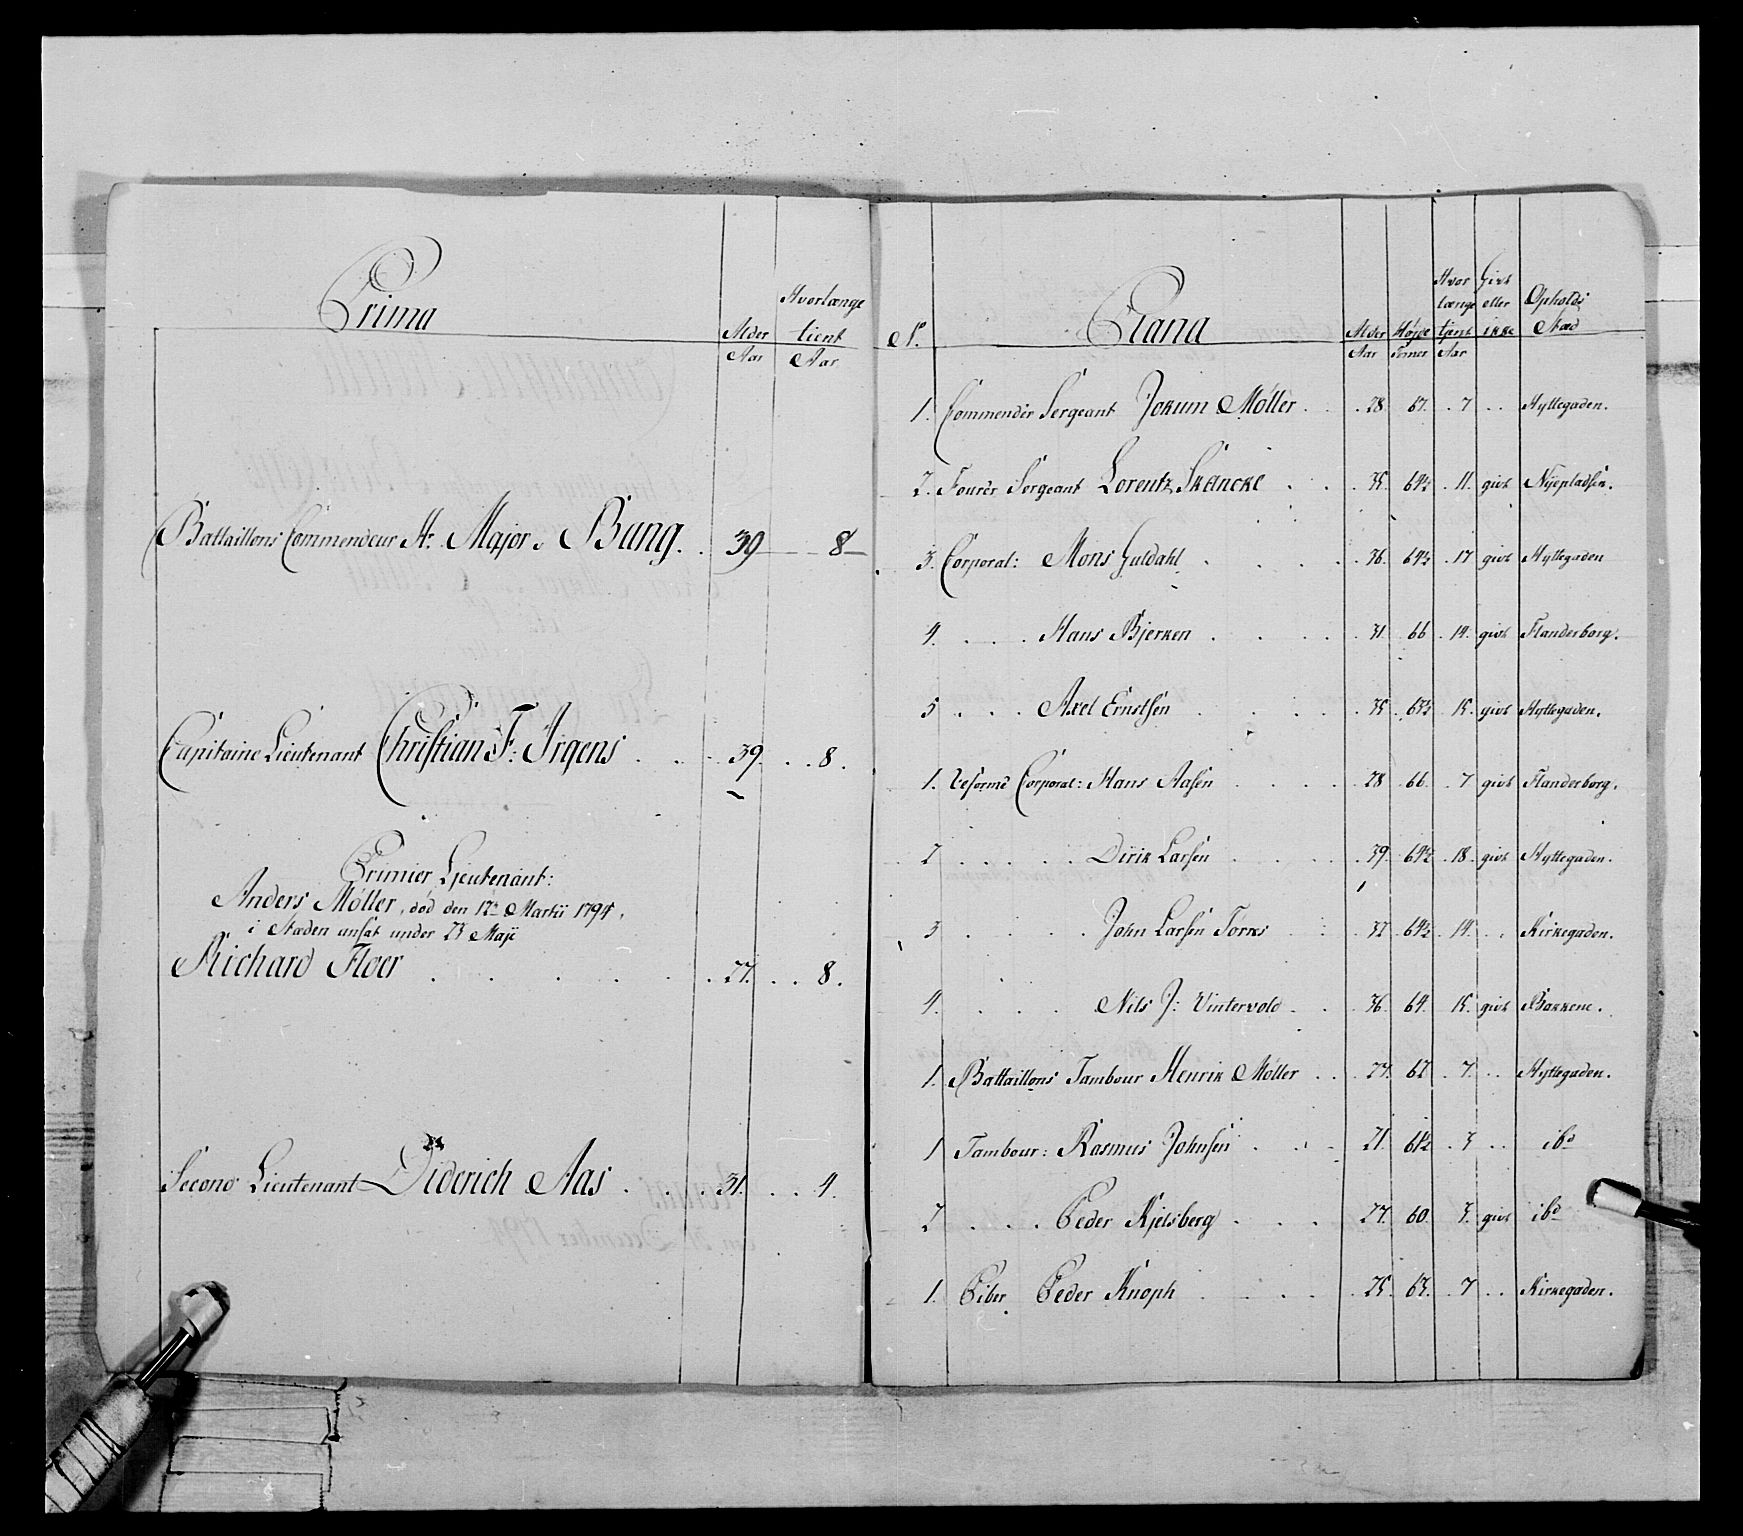 Prima
Alder
Aar
Hvorlænge
tient
Aar
Battaillons Commendeur Hr. Major v Bang. . 39 8
Capitaine Lieutenant Christian F: Irgens . . . 39. . . 8.
Primier Lieutenant:
Anders Möller, död den 17de Martii 1794,
i Stæden ansat under 23 Maji
Richard Floer . . . . . . 27. . . 8.
Second Lieutenant Diderich Aas . . . . 31. . . 4.
No. Plana
Alder
Aar
Højde
Tomer
Hvor
længe
tjent
Aar
Givt
eller
ikke
Opholds
Stæd
1. Commender Sergeant Jokum Møller . . . 28. 67. . 7 . . Hyttegaden.
2. Fourér Sergeant Lorentz Skancke . . . 35. 64½ . 11. givt Nyepladsen.
3. Corporal: Mons Guldahl . . . . 36. 64½ . 17 givt Hyttegaden
4. . . . Hans Bjerken . . . . 31. 66 . 14. givt Flanderborg.
5 . . . Axel Ernstsen . . . . 35 . 63½ . 15. givt Hyttegaden.
1. Reformé Corporal: Hans Aasen . . . . 28 . 66. . 7 givt Flanderborg.
2 . . . . . Dirik Larsen . . . . 39. 64½ . 18. givt Hyttegaden.
3 . . . . John Larsen Torres . . . 32 . 64½ . 14. . . Kirkegaden.
4. . . . . Nils J: Vintervold . . . 36. 64. . 15. givt Bakkene.
1. Battaillons Tambour Henrik Møller . . . 27. 62 . 7. . . Hyttegaden.
1 Tambour: Rasmus Johnsen . . . 21. 61½ . 3 . . ibd
2 . . . Peder Kjelsberg . . . . 27. 60. . 3. givt ibd
1. Piber Peder Knoph . . . . 25. 63. . 7 . . Kirkegaden.